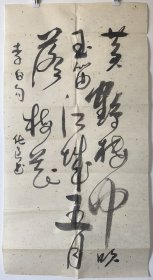 黄鹤楼中吹
玉笛江城五月
落梅花
李白句